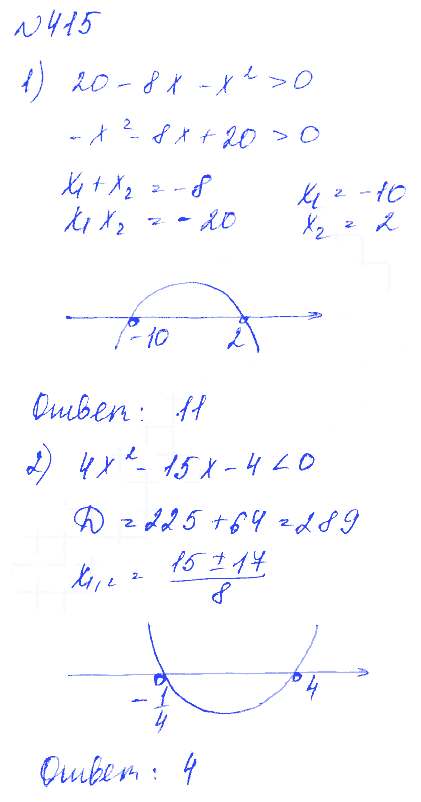 №415
1) 20 - 8x - x² > 0
-x² - 8x + 20 > 0
x₁ + x₂ = -8 x₁ = -10
x₁ x₂ = -20 x₂ = 2
-10 2
Ответ: 11
2) 4x² - 15x - 4 < 0
D = 225 + 64 = 289
x₁,₂ = (15 ± 17)/8
-1/4 4
Ответ: 4